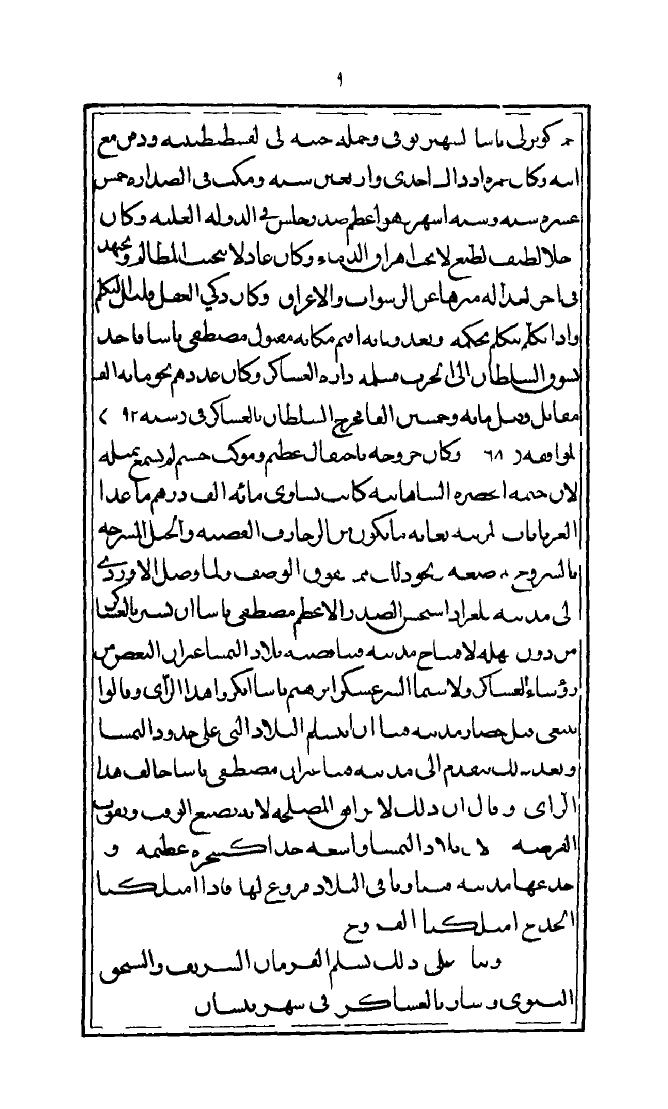 ٩
حمد كوبرلي باشا الشهير توفي وحمله حنينه الى القسطنطينيه ودفن مع
ابيه وكان عمره اذ ذاك احدى واربعين سنه ومكث في الصداره خمس
عشره سنه وستة اشهر وهو اعظم صدر جلس في الدولة العليه وكان
حلا لطيف الطبع لا يحب اهراق الدماء وكان عادلا يتجنب المظالم ويجتهد
في اجراء العداله منزها عن الرشوات والاغراض وكان ذكي العقل قليل التكلم
واذا تكلم تكلم بحكمه وبعد وفاته اقيم مكانه مقتول مصطفى باشا فاخذ
يشوق السلطان الى الحرب فسلمه داره العساكر وكان عددهم نحو مايه الف
مقاتل وقيل مايه وخمسين الفا فخرج السلطان بالعساكر في سنه ٩٢
الموافقه ٦٨ وكان خروجه باحتفال عظيم وموكب جسيم لم يسمع بمثله
لان خيمة الحضره السلطانيه كانت تساوي مائه الف درهم ما عدا
العربات المزينه بغايه ما يكون من الزخارف الفضيه والخيل المسرجه
بالسروج صنعه نحو ذلك مما يفوق الوصف ولما وصل الاوردي
الى مدينه بلغراد استحسن الصدر الاعظم مصطفى باشا ان يسير بالعساكر
من دون مهله لافتتاح مدينه فيينا قصبه بلاد النمسا غير ان البعض من
رؤساء العساكر ولا سيما السر عسكر ابرهيم باشا انكروا هذا الرأى وقالوا
ينبغي قبل حصار مدينه فيينا ان نتسلم البلاد التي على حدود النمسا
وبعد ذلك نتقدم الى مدينه فيينا غير ان مصطفى باشا خالف هذا
الرأى وقال ان ذلك لا يوافق المصلحه لانه يضيع الوقت ويفوت
الفرصه لان بلاد النمسا واسعه جدا كشجره عظيمه و
جذعها مدينه فيينا وباقي البلاد فروع لها فاذا امتلكنا
الجذع امتلكنا الفروع
وبنا على ذلك تسلم الفرمان الشريف والسنجق
النبوي وسار بالعساكر في شهر نيسان